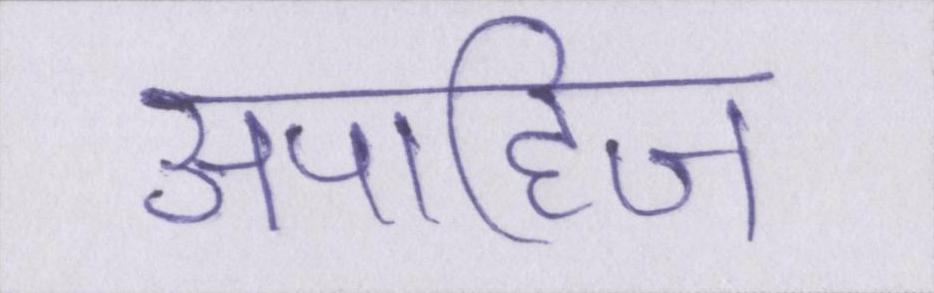 अपाहिज